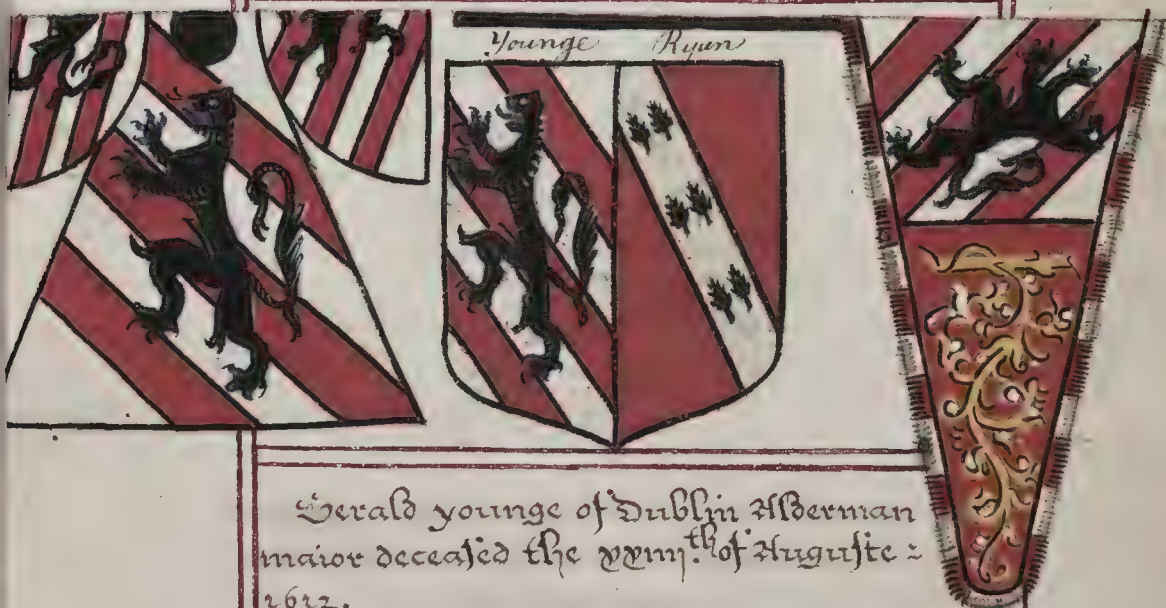 Younge Ryan
Gerald younge of Dublin Alderman
maior deceased the xxiiij.th of Auguste =
1612.